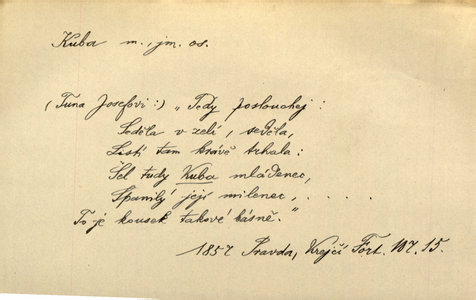 Kuba m., jm. os.
(Tůna Josefovi:) „Tedy poslouchej:
Seděla v zelí, seděla,
Listí tam krávě trhala:
Šel tudy Kuba mládenec,
Spanilý její milenec, . . . . .
To je kousek takové básně."
1857 Pravda, Krejčí Fört. 107. 15.